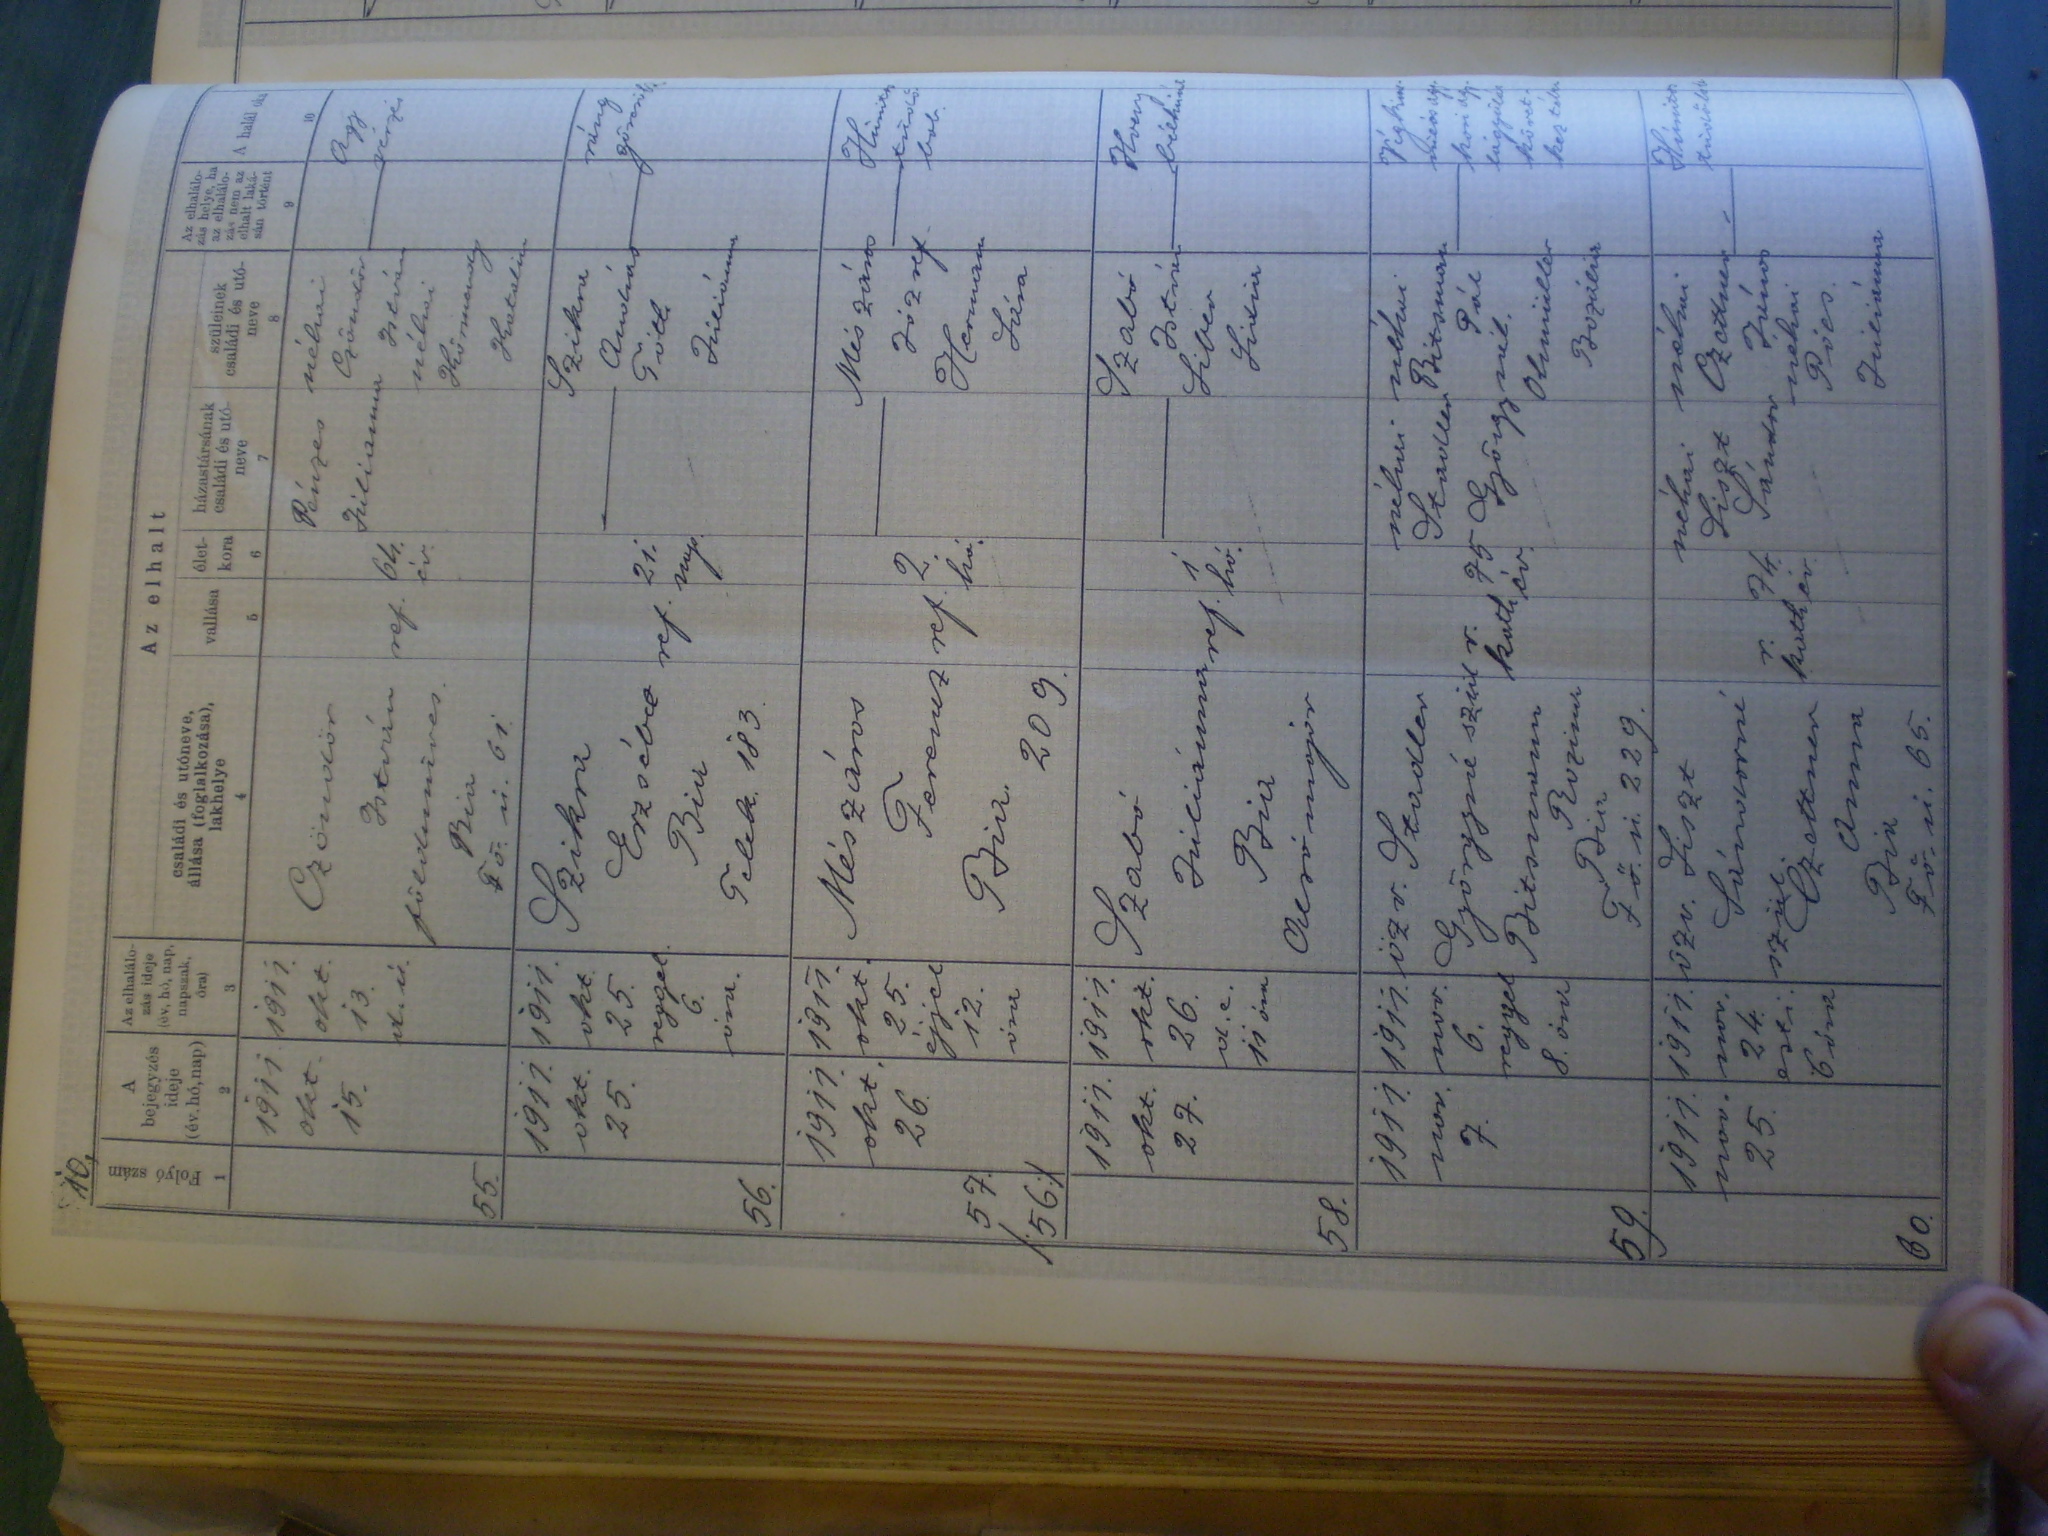 10.
Az elhalt
Folyó szám
A bejegyzés ideje (év, hó, nap)
Az elhalálozás ideje (év, hó, nap, napszak, óra)
családi és utóneve, állása (foglalkozása), lakhelye
vallása
életkora
házastársának családi és utóneve
szüleinek családi és utóneve
Az elhalálozás helye, ha az elhalálozás nem az elhalt lakásán történt
A halál oka
1 2 3 4 5 6 7 8 9 10
55.
1911.
okt.
15.
1911.
okt.
13.
Czöndör
István
földmíves.
Bia
Fő. u. 61.
ref.
64.
év.
Pénzes
Juliánna
néhai
Czöndör
István
néhai
Körmendy
Katalin
Agy
vérzés
56.
1911.
okt.
25.
1911.
okt.
25.
reggel
6.
óra.
Szikra
Erzsébet
Bia
Telek. 183.
ref.
21.
nap.
Szikra
András
Tóth
Juliánna
ráng
görcsök
57.
/56./
1911.
okt.
26.
1911.
okt.
25.
éjjel
12.
óra
Mészáros
Ferencz
Bia.
209.
ref.
2.
hó.
Mészáros
József
Herman
Sára
Hurutos
tüdő
lob.
58.
1911.
okt.
27.
1911.
okt.
26.
d. e.
11 óra
Szabó
Juliánna
Bia
Alsómajor
ref.
1
hó.
Szabó
István
Liber
Lidia
Heveny
bélhurut
59.
1911.
nov.
7.
1911.
nov.
6.
reggel
8. óra
özv. Stadler
Györgyné szül
Bitsman
Rozina
Bia
Fő. u. 229.
r.
kath
75
év.
néhai
Stadler
György
néhai
Bitsman
Pál
néh.
Rozália
Végkimerülés
kori
következtében
60.
1911.
nov.
25.
1911.
nov.
24.
esti.
6 óra
özv. Liszt
Sándorné
szül.
Czattner
Anna
Bia
Fő. u. 65.
r.
kath
74.
év
néhai
Liszt
Sándor
néhai
Czattner
János
néhai
Pócs.
Juliánna
Hurutos